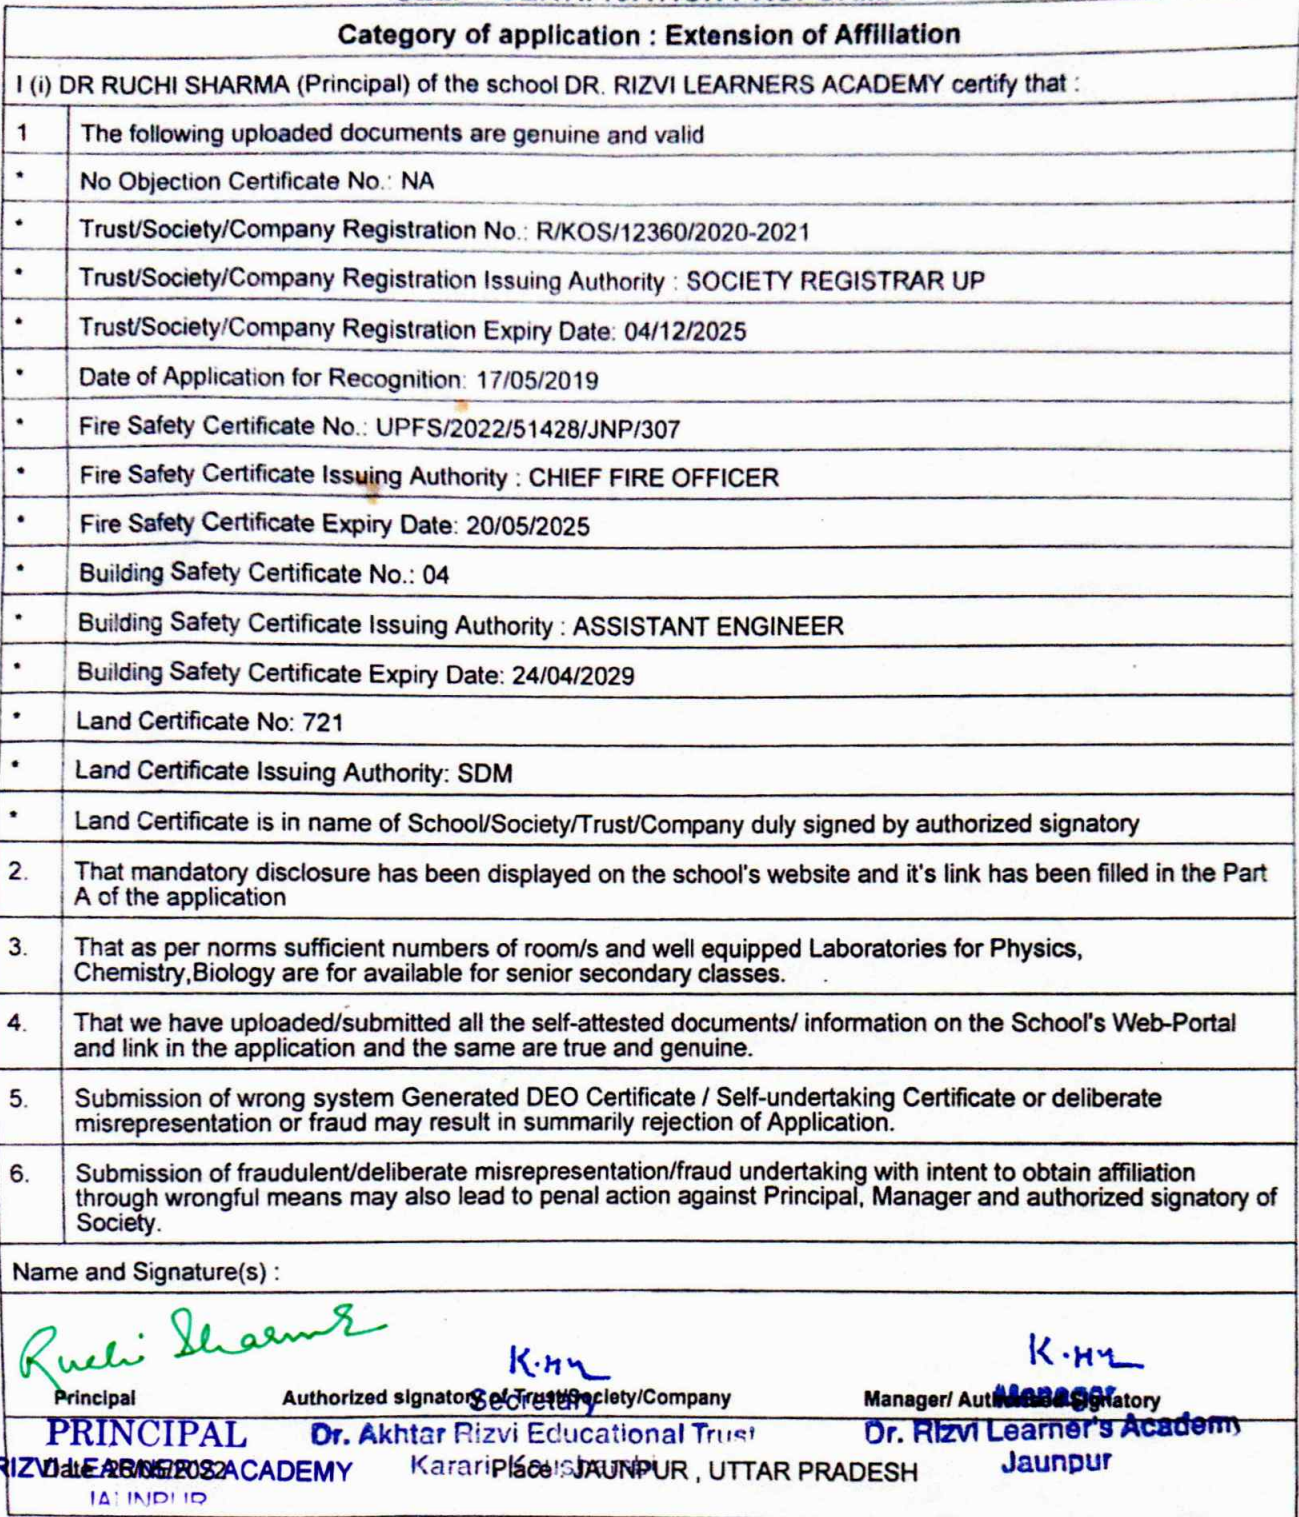 Category of application : Extension of Affiliation
I (i) DR RUCHI SHARMA (Principal) of the school DR. RIZVI LEARNERS ACADEMY certify that :
1 The following uploaded documents are genuine and valid
* No Objection Certificate No.: NA
* Trust/Society/Company Registration No.: R/KOS/12360/2020-2021
* Trust/Society/Company Registration Issuing Authority : SOCIETY REGISTRAR UP
* Trust/Society/Company Registration Expiry Date: 04/12/2025
* Date of Application for Recognition: 17/05/2019
* Fire Safety Certificate No.: UPFS/2022/51428/JNP/307
* Fire Safety Certificate Issuing Authority : CHIEF FIRE OFFICER
* Fire Safety Certificate Expiry Date: 20/05/2025
* Building Safety Certificate No.: 04
* Building Safety Certificate Issuing Authority : ASSISTANT ENGINEER
* Building Safety Certificate Expiry Date: 24/04/2029
* Land Certificate No: 721
* Land Certificate Issuing Authority: SDM
* Land Certificate is in name of School/Society/Trust/Company duly signed by authorized signatory
2. That mandatory disclosure has been displayed on the school's website and it's link has been filled in the Part
A of the application
3. That as per norms sufficient numbers of room/s and well equipped Laboratories for Physics,
Chemistry,Biology are for available for senior secondary classes.
4. That we have uploaded/submitted all the self-attested documents/ information on the School's Web-Portal
and link in the application and the same are true and genuine.
5. Submission of wrong system Generated DEO Certificate / Self-undertaking Certificate or deliberate
misrepresentation or fraud may result in summarily rejection of Application.
6. Submission of fraudulent/deliberate misrepresentation/fraud undertaking with intent to obtain affiliation
through wrongful means may also lead to penal action against Principal, Manager and authorized signatory of
Society.
Name and Signature(s) :
Ruchi Sharma
Principal Authorized signatory of Trust/Society/Company Manager/ Authorized Signatory
Secretary Manager
PRINCIPAL Dr. Akhtar Rizvi Educational Trust Dr. Rizvi Learner's Academy
RIZVI LEARNERS ACADEMY Karari Jaunpur
Date Place : JAUNPUR , UTTAR PRADESH
JAUNPUR